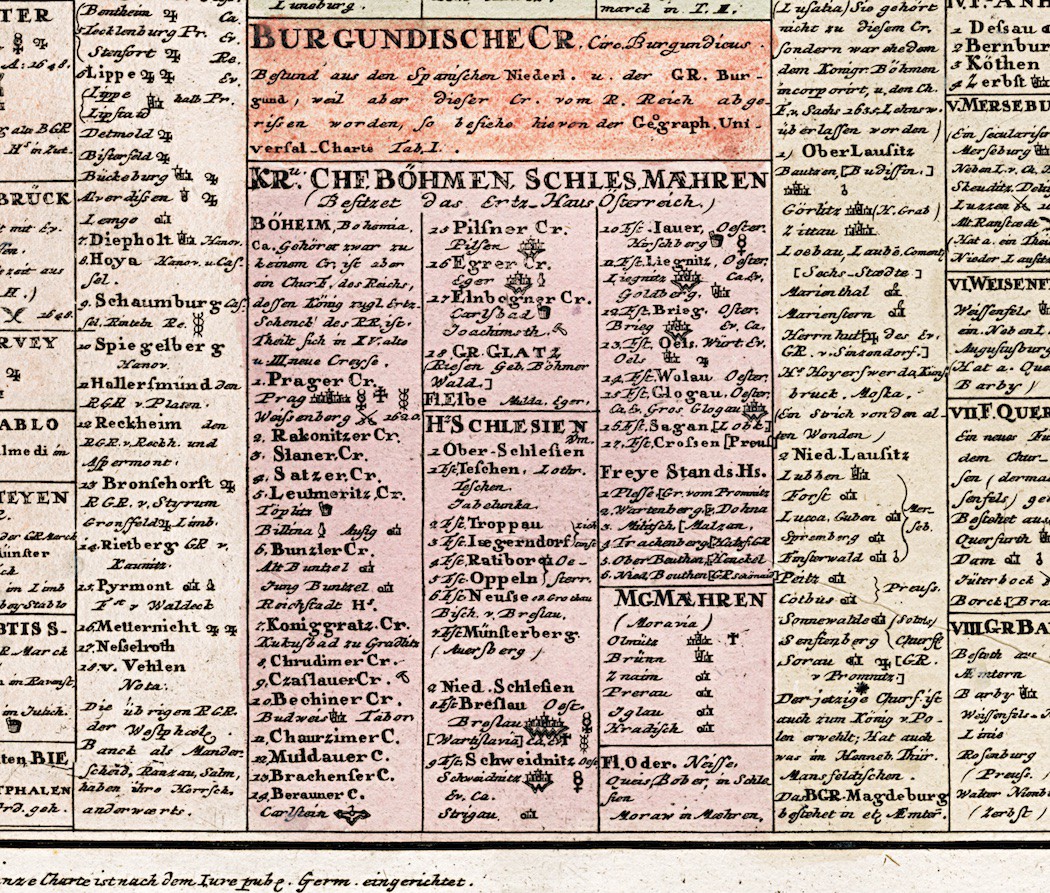 TER
A: 1648.
Hs in Zut.
BRÜCK
H.)
1648.
RVEY
ABLO
lmedi in
TEYEN
Münster
im Limb
BTIS S-
R. Marck
im Jülich.
BIE
TPHALEN
Ord. geh.
Bentheim Ca.
Tecklenburg Pr. Ev.
Stenfort Re.
6 Lippe Ev
(Lippe halb Pr.
Lipstad
Detmold
Bisterfeld
Bückeburg
Alverdissen
Lemgo
7. Diepholt Hanov.
8. Hoya Hanov. u. Cas-
sel.
9. Schaumburg Cas-
sel. Rinteln Re.
10 Spiegelberg
Hanov.
11 Hallersmund den
RGR v. Platen.
12 Reckheim den
RGR v. Reckh. und
Aspermont.
13 Bronkhorst
RGR. v. Styrum
Gronsfeld Limb.
14. Rietberg GR v.
Kaunitz.
15. Pyrmont
Fst v Waldeck
16. Metternicht
17. Nesselroth
18. v. Vehlen
Nota.
Die übrigen RGR.
der Westphæl.
Banck als Mander-
scheid, Ranzau, Salm,
haben ihre Herrsch.
anderwærts.
Luneburg.
marck in T. II.
BURGUNDISCHE CR. Circ. Burgundicus.
Bestund aus den Spanischen Niederl. u. der GR. Bur-
gund, weil aber dieser Cr. vom R. Reich abge-
rissen worden, so besiehe hievon der Geograph. Uni-
versal-Charte Tab. I.
KRu. CHF. BÖHMEN, SCHLES, MÆHREN
(Besitzet das Ertz-Haus Österreich,)
BÖHEIM, Bohemia,
Ca. Gehöret zwar zu
keinem Cr. ist aber
ein Churf. des Reichs,
dessen König zugl. Ertz-
Schenck des RR ist.
Theilt sich in XV. alte
u. III neue Creyse.
1. Prager Cr.
Prag
Weissenberg 1620.
2. Rakonitzer Cr.
3. Slaner. Cr.
4. Satzer. Cr.
5. Leutmeritz. Cr.
Töplitz
Billina Ausig
6. Bunzler Cr.
Alt Buntzel
Jung Buntzel
Reichstadt Hs.
7. Koniggratz. Cr.
Kukusbad zu Gradlitz
8. Chrudimer Cr.
9. Czaslauer Cr.
10 Bechiner Cr.
Budweis Tabor
11. Chaurzimer C.
12. Muldauer C.
13. Brachenser C.
14. Berauner C.
Carlstain
15 Pilsner Cr.
Pilsen
16 Egrer Cr.
Eger
17 Elnbogner Cr.
Carlsbad
Joachimsth.
18 GR. GLATZ
(Riesen Geb. Böhmer
Wald.]
Fl. Elbe Mulda, Eger.
Hs SCHLESIEN
1 Ober-Schlesien
1 Fst. Teschen. Lothr.
Teschen.
Jabelunka.
2 Fst. Troppau
3 Fst. Iægerndorf
4. Fst. Ratibor Oe-
5 Fst. Oppeln sterr.
6 Fst. Neusse
Bisch. v. Breslau.
7 Fst. Münsterberg.
(Auersberg)
2 Nied. Schlesien
8 Fst. Breslau Oest.
Breslau
[Wartislavia] Ca. Ev.
9 Fst. Schweidnitz
Schweidnitz
Ev. Ca.
Strigau.
10 Fst. Iauer, Oester.
Hirschberg
11. Fst. Liegnitz, Oester.
Liegnitz Ca. Ev.
Goldberg.
12. Fst. Brieg. Oster.
Brieg Ev. Ca.
13. Fst. Oels. Wirt. Ev.
Oels
14. Fst. Wolau Oester.
15 Fst. Glogau. Oester.
Ca. Ev. Gros. Glogau
16 Fst. Sagan [Lobk.]
17. Fst. Crossen [Preus
Freye Stands. Hs.
1 Plesse [Gr. vom Promnitz
2. Wartenberg [z. Dohna
3. Militsch [Malzan.
4 Trachenberg [Hatzf. GR
5. Ober Beuthen [Henckel
6. Nied. Beuthen
MG MÆHREN
(Moravia)
Olmütz
Brünn
Znaim
Prerau
Iglau
Hradisch
Fl. Oder. Neisse,
Queis, Bober, in Schle
sien
Moraw in Mæhren,
(Lusatia) Sie gehört
nicht zu diesem Cr.
sondern war ehedem
dem Königr. Böhmen
incorporirt, u. den Ch.
F. v. Sachs 1635. Lehnsw.
überlassen worden)
1) Ober Lausitz
Bautzen, [Budissin.]
Görlitz (H. Grab)
Zittau
Loebau, Laubë, Cament,
[Sechs-Stædte]
Marienthal
Marienstern
Herrnhuth des Ev.
GR. v. Sinzendorf.]
Hs Hoyerswerda, Königs
bruck, Moska.
(Ein Strich von den al-
ten Wenden)
2 Nied. Lausitz
Lubben
Forst
Lucca, Guben Mer-
Spremberg seb.
Finsterwald
Peitz
Cotbus Preuss.
Sonnewalde (Solms)
Senftenberg (Churfst
Sorau [GR.
v Promnitz]
Der jetzige Churf. ist
auch zum König v. Po-
len erwehlt; Hat auch
was im Henneb. Thür.
Mansfeldischen.
Das BGR. Magdeburg
bestehet in etl Æmter.
IV. F. ANH
1 Dessau
2 Bernbur
3 Köthen
4 Zerbst
V. MERSEBU
(Ein secularisir
Merseburg
Neben L. v. Ch.
Skeuditz.
Luzzen
Alt Ranstædt
(Hat a. ein Thei
Nieder Lausitz
VI. WEISENF
Weissenfels
ein Neben L
Augustusburg
(Hat a. Que
Barby)
VII F. QUER
Ein neues Fu
dem Chur-
sen (derma
senfels) ge
Bestehet aus
Querfurth
Dam
Jüterbock
Borck [Bra
VIII. GR BA
Besteth aus
Æmtern
Barby
Weissenfels-
Linie
Rosenburg
(Preuss.)
Walter Nienbu
(Zerbst)
nze Charte ist nach dem Iure publ. Germ. eingerichtet.